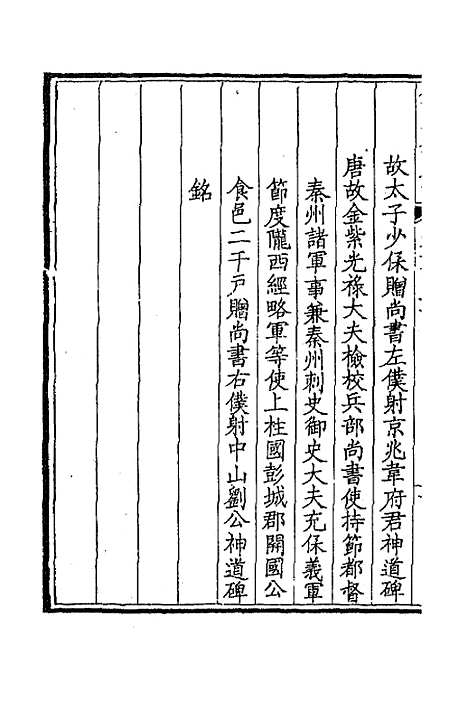 故太子少保贈尚書左僕射京兆韋府君神道碑
唐故金紫光祿大夫檢校兵部尚書使持節都督
秦州諸軍事兼秦州刺史御史大夫充保義軍
節度隴西經略軍等使上柱國彭城郡開國公
食邑二千戸贈尚書右僕射中山劉公神道碑
銘